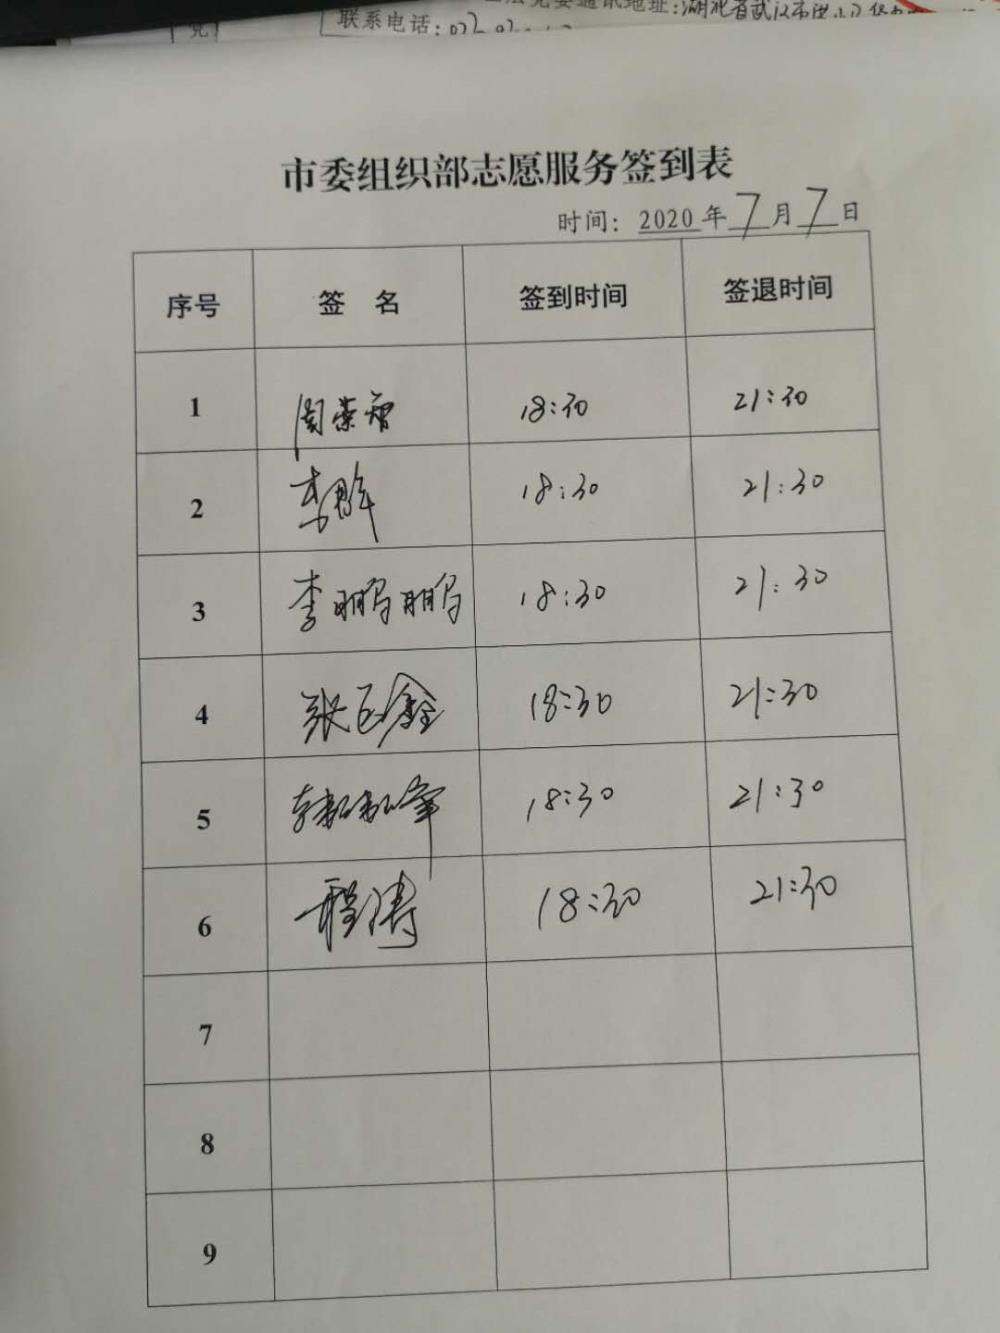 通讯地址:湖北省武汉市洪山区
联系电话:027
市委组织部志愿服务签到表
时间: 2020 年 7 月 7 日
序号 签 名 签到时间 签退时间
1 周荣智 18:30 21:30
2 李 18:30 21:30
3 李鹏鹏 18:30 21:30
4 张巨鑫 18:30 21:30
5 18:30 21:30
6 程涛 18:30 21:30
7
8
9